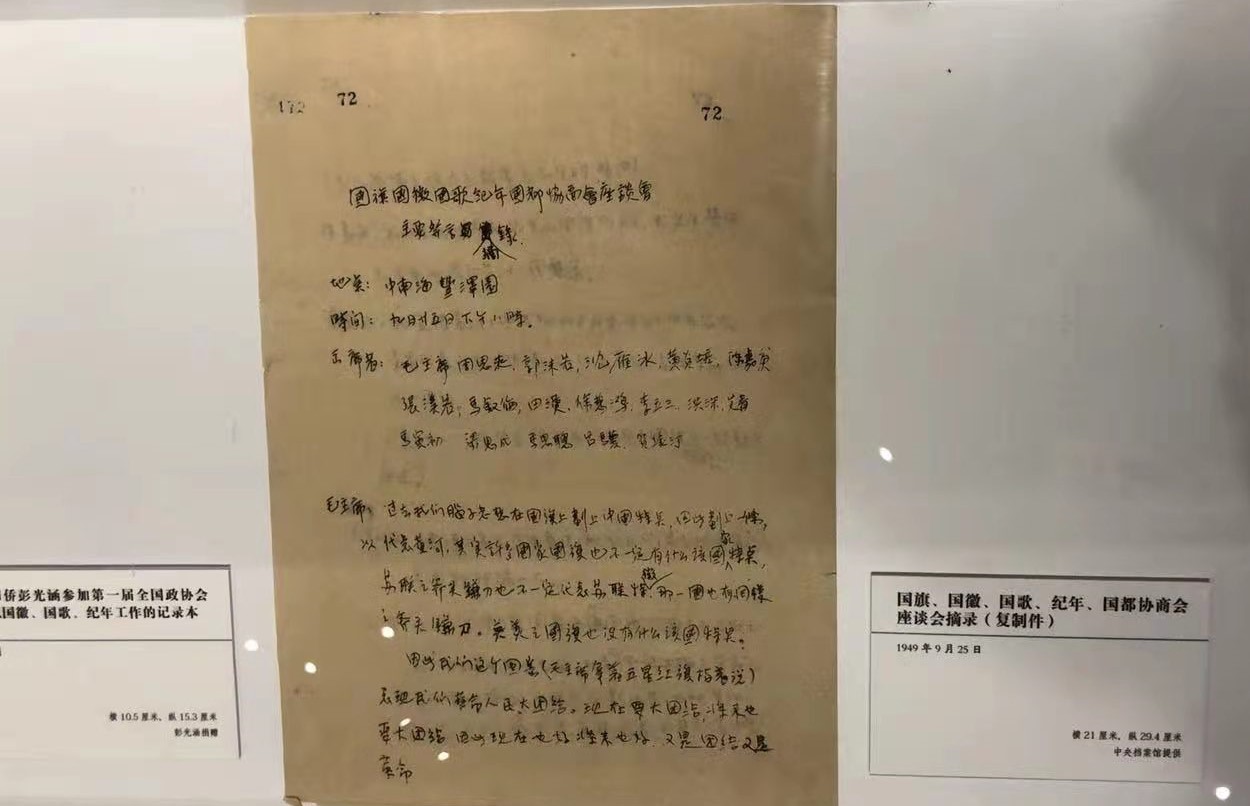 172 72
72
國旗國徽國歌纪年國都協商會座談會
主要發言摘錄
地点：中南海豐澤園
時间：九月廿五日下午八時。
出席者：毛主席 周恩来，郭沫若，沈雁冰，黄炎培，陈嘉庚
張奚若，馬叙倫，田漢，徐悲鴻，李立三，洪深，艾青
馬寅初 梁思成 馬思聰 吕驥 贺绿汀
毛主席：过去我们脑子老想在國旗上劃上中國特点，因此劃上一條，
以代表黄河，其实許多國家國旗也不一定有什么该國家特点，
苏联之斧头鐮刀也不一定代表苏联特徵，那一國也有同樣
之斧头鐮刀。英美之國旗也没有什么该國特点。
因此我们这个图案（毛主席拿着五星红旗指着说）
表现我们革命人民大团结。现在要大团结，将来也
要大团结 因此现在也好将来也好，又是团结又是
革命
侨彭光涵参加第一届全国政协会
国徽、国歌、纪年工作的记录本
横 10.5 厘米，纵 15.3 厘米
彭光涵捐赠
国旗、国徽、国歌、纪年、国都协商会
座谈会摘录（复制件）
1949 年 9 月 25 日
横 21 厘米，纵 29.4 厘米
中央档案馆提供